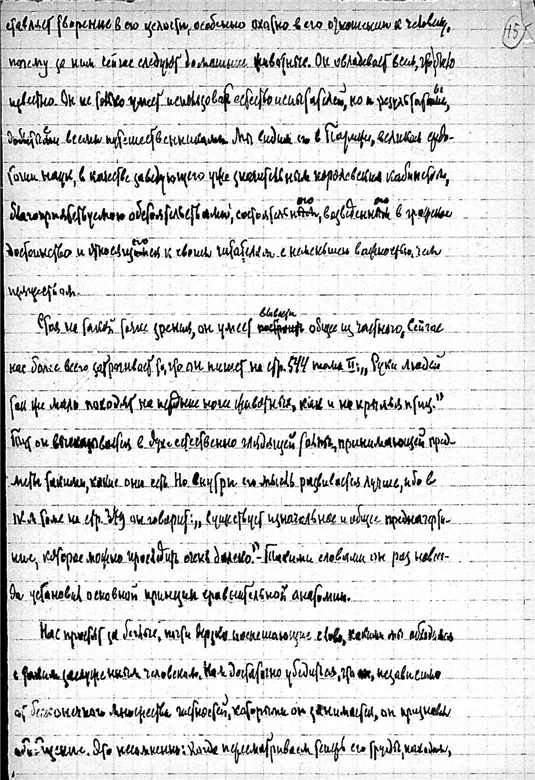 15
ставляет творение в его целости, особенно охотно в его отношении к человеку,
почему за ним сейчас следуют домашние животные. Он овладевает всем, что было
известно. Он не только умеет использовать естествоиспытателей, но и результатами,
добытыми всеми путешественниками. Мы видим его в Париже, великом средо-
точии наук, в качестве заведующего уже значительным королевским кабинетом,
благоприятствуемого обстоятельствами, состоятельного, возведенного в графское
достоинство и относящегося к своим читателям с неменьшею важностью, чем
изяществом.
Стоя на такой точке зрения, он умеет вывести общее из частного. Сейчас
нас более всего затрагивает то, что он пишет на стр. 544 тома II: „Руки людей
так же мало походят на передние ноги животных, как и на крылья птиц."
Тут он высказывается в духе естественно глядящей толпы, принимающей пред-
меты такими, какие они есть. Но внутри его мысль развивается лучше, ибо в
IV-м томе на стр. 379 он говорит: „Существует изначальное и общее предначерта-
ние, которое можно проследить очень далеко." – Такими словами он раз навсег-
да установил основной принцип сравнительной анатомии.
Нас простят за беглые, почти дерзко поспешающие слова, какими мы обходимся
с таким заслуженным человеком. Нам достаточно убедиться, что, независимо
от бесконечного множества частностей, которыми он занимается, он признавал
обобщение. Это несомненно: Когда пересматриваем теперь его труды, находим,